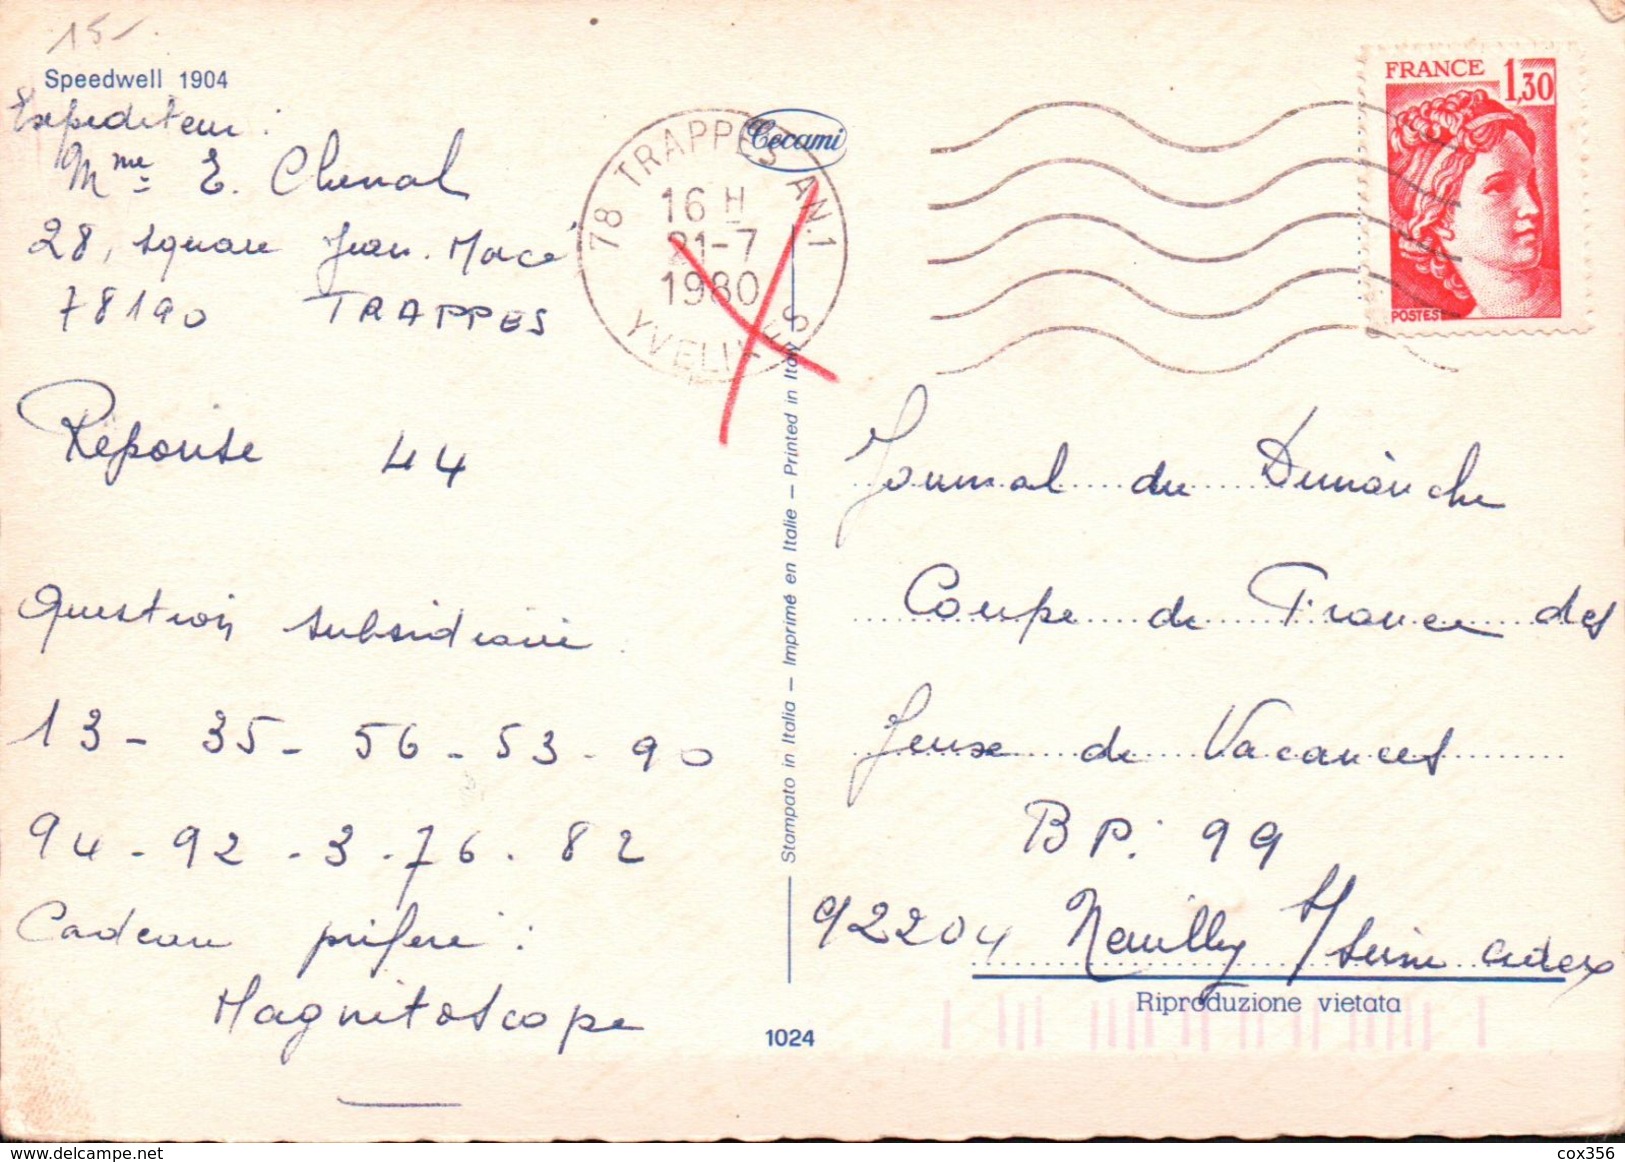 15
Speedwell 1904
Expediteur :
Mme E. Chenal
28, square Jean-Macé
78190 TRAPPES
Réponse 44
Question subsidiaire
13 - 35 - 56 - 53 - 90
94 - 92 - 3 - 76 - 82
Cadeau préféré :
Magnétoscope
Cecami
78 TRAPPES AN.1
16 H
21-7
1980
YVELINES
Stampato in Italia – Imprimé en Italie – Printed in Italy
1024
FRANCE 1,30
POSTES
Journal du Dimanche
Coupe de France des
Jeux de Vacances
BP: 99
92204 Neuilly s/Seine cedex
Riproduzione vietata
delcampe.net
cox356